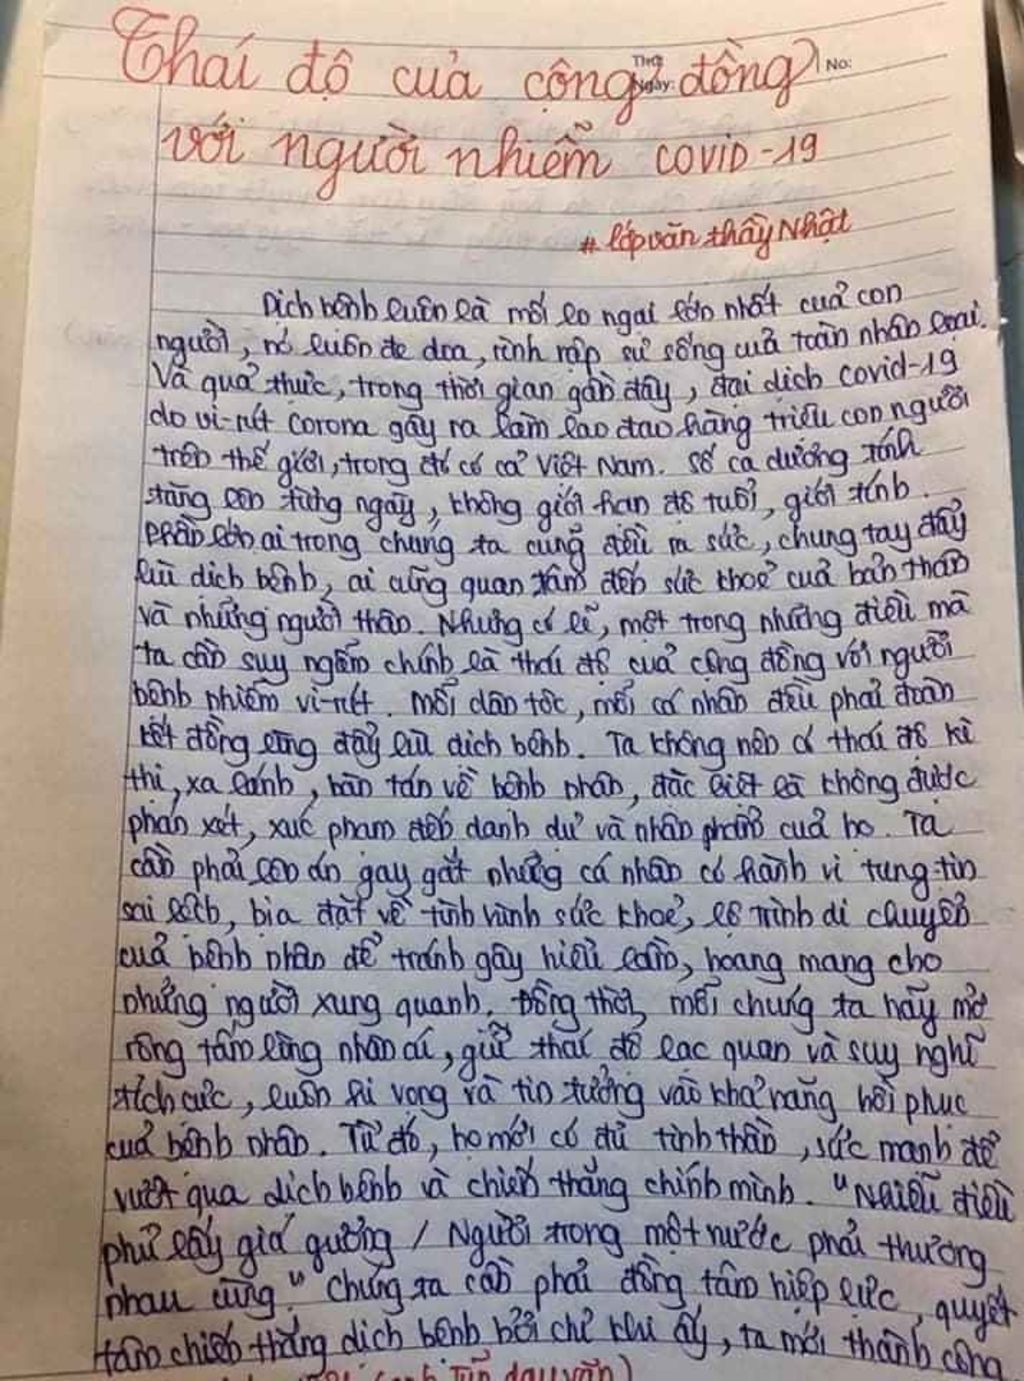 Thái độ của cộng đồng
Thứ
Ngày:
No:
với người nhiễm COVID-19
# lớp văn thầy Nhật
Dịch bệnh luôn là mối lo ngại lớn nhất của con
người, nó luôn đe dọa, rình rập sự sống của toàn nhân loại.
Và quả thực, trong thời gian gần đây, đại dịch covid-19
do vi-rút Corona gây ra làm lao đao hàng triệu con người
trên thế giới, trong đó có cả Việt Nam. Số ca dương tính
tăng lên từng ngày, không giới hạn độ tuổi, giới tính.
Phần lớn ai trong chúng ta cũng đều ra sức, chung tay đẩy
lùi dịch bệnh, ai cũng quan tâm đến sức khoẻ của bản thân
và những người thân. Nhưng có lẽ, một trong những điều mà
ta cần suy ngẫm chính là thái độ của cộng đồng với người
bệnh nhiễm vi-rút. Mỗi dân tộc, mỗi cá nhân đều phải đoàn
kết đồng lòng đẩy lùi dịch bệnh. Ta không nên có thái độ kì
thị, xa lánh, bàn tán về bệnh nhân, đặc biệt là không được
phán xét, xúc phạm đến danh dự và nhân phẩm của họ. Ta
cần phải lên án gay gắt những cá nhân có hành vi tung tin
sai lệch, bịa đặt về tình hình sức khoẻ, lộ trình di chuyển
của bệnh nhân để tránh gây hiểu lầm, hoang mang cho
những người xung quanh. Đồng thời, mỗi chúng ta hãy mở
rộng tấm lòng nhân ái, giữ thái độ lạc quan và suy nghĩ
tích cực, luôn hi vọng và tin tưởng vào khả năng hồi phục
của bệnh nhân. Từ đó, họ mới có đủ tinh thần, sức mạnh để
vượt qua dịch bệnh và chiến thắng chính mình. "Nhiễu điều
phủ lấy giá gương / Người trong một nước phải thương
nhau cùng." Chúng ta cần phải đồng tâm hiệp lực, quyết
tâm chiến thắng dịch bệnh bởi chỉ khi ấy, ta mới thành công